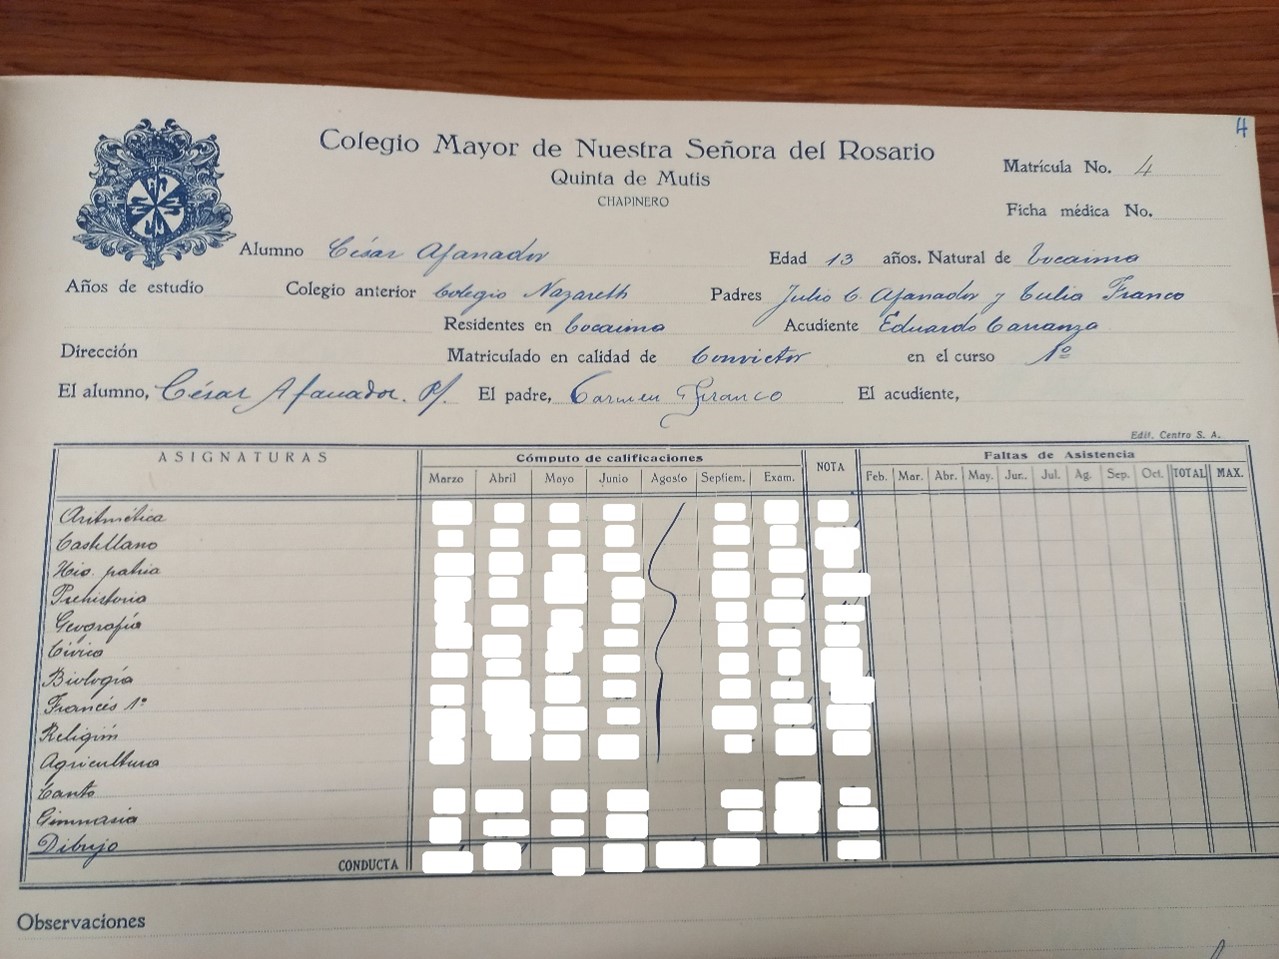 4
Colegio Mayor de Nuestra Señora del Rosario
Quinta de Mutis
CHAPINERO
Matrícula No. 4
Ficha médica No.
Alumno César Afanador Edad 13 años. Natural de Tocaima
Años de estudio Colegio anterior Colegio Nazareth Padres Julio C. Afanador y Tulia Franco
Residentes en Tocaima Acudiente Eduardo Carranza
Dirección Matriculado en calidad de Convictor en el curso 1º
El alumno, César Afanador El padre, Carmen Franco El acudiente,
Edit. Centro S. A.
ASIGNATURAS Cómputo de calificaciones NOTA Faltas de Asistencia
Marzo Abril Mayo Junio Agosto Septiem. Exam. Feb. Mar. Abr. May. Jur. Jul. Ag. Sep. Oct. TOTAL MAX.
Aritmética
Castellano
His. patria
Prehistoria
Geografía
Cívica
Biología
Francés 1º
Religión
Agricultura
Canto
Gimnasia
Dibujo
CONDUCTA
Observaciones